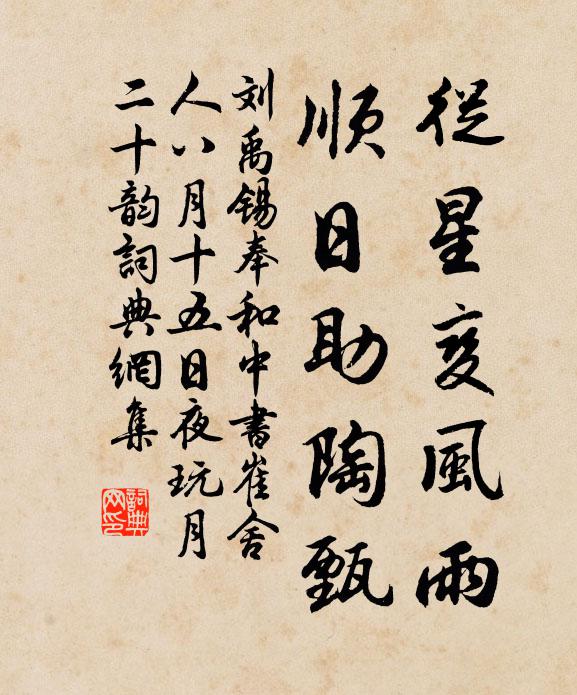 從星變風雨
順日助陶甄
刘禹锡奉和中書崔舍
人八月十五日夜玩月
二十韵詞典網集
詞典
网印